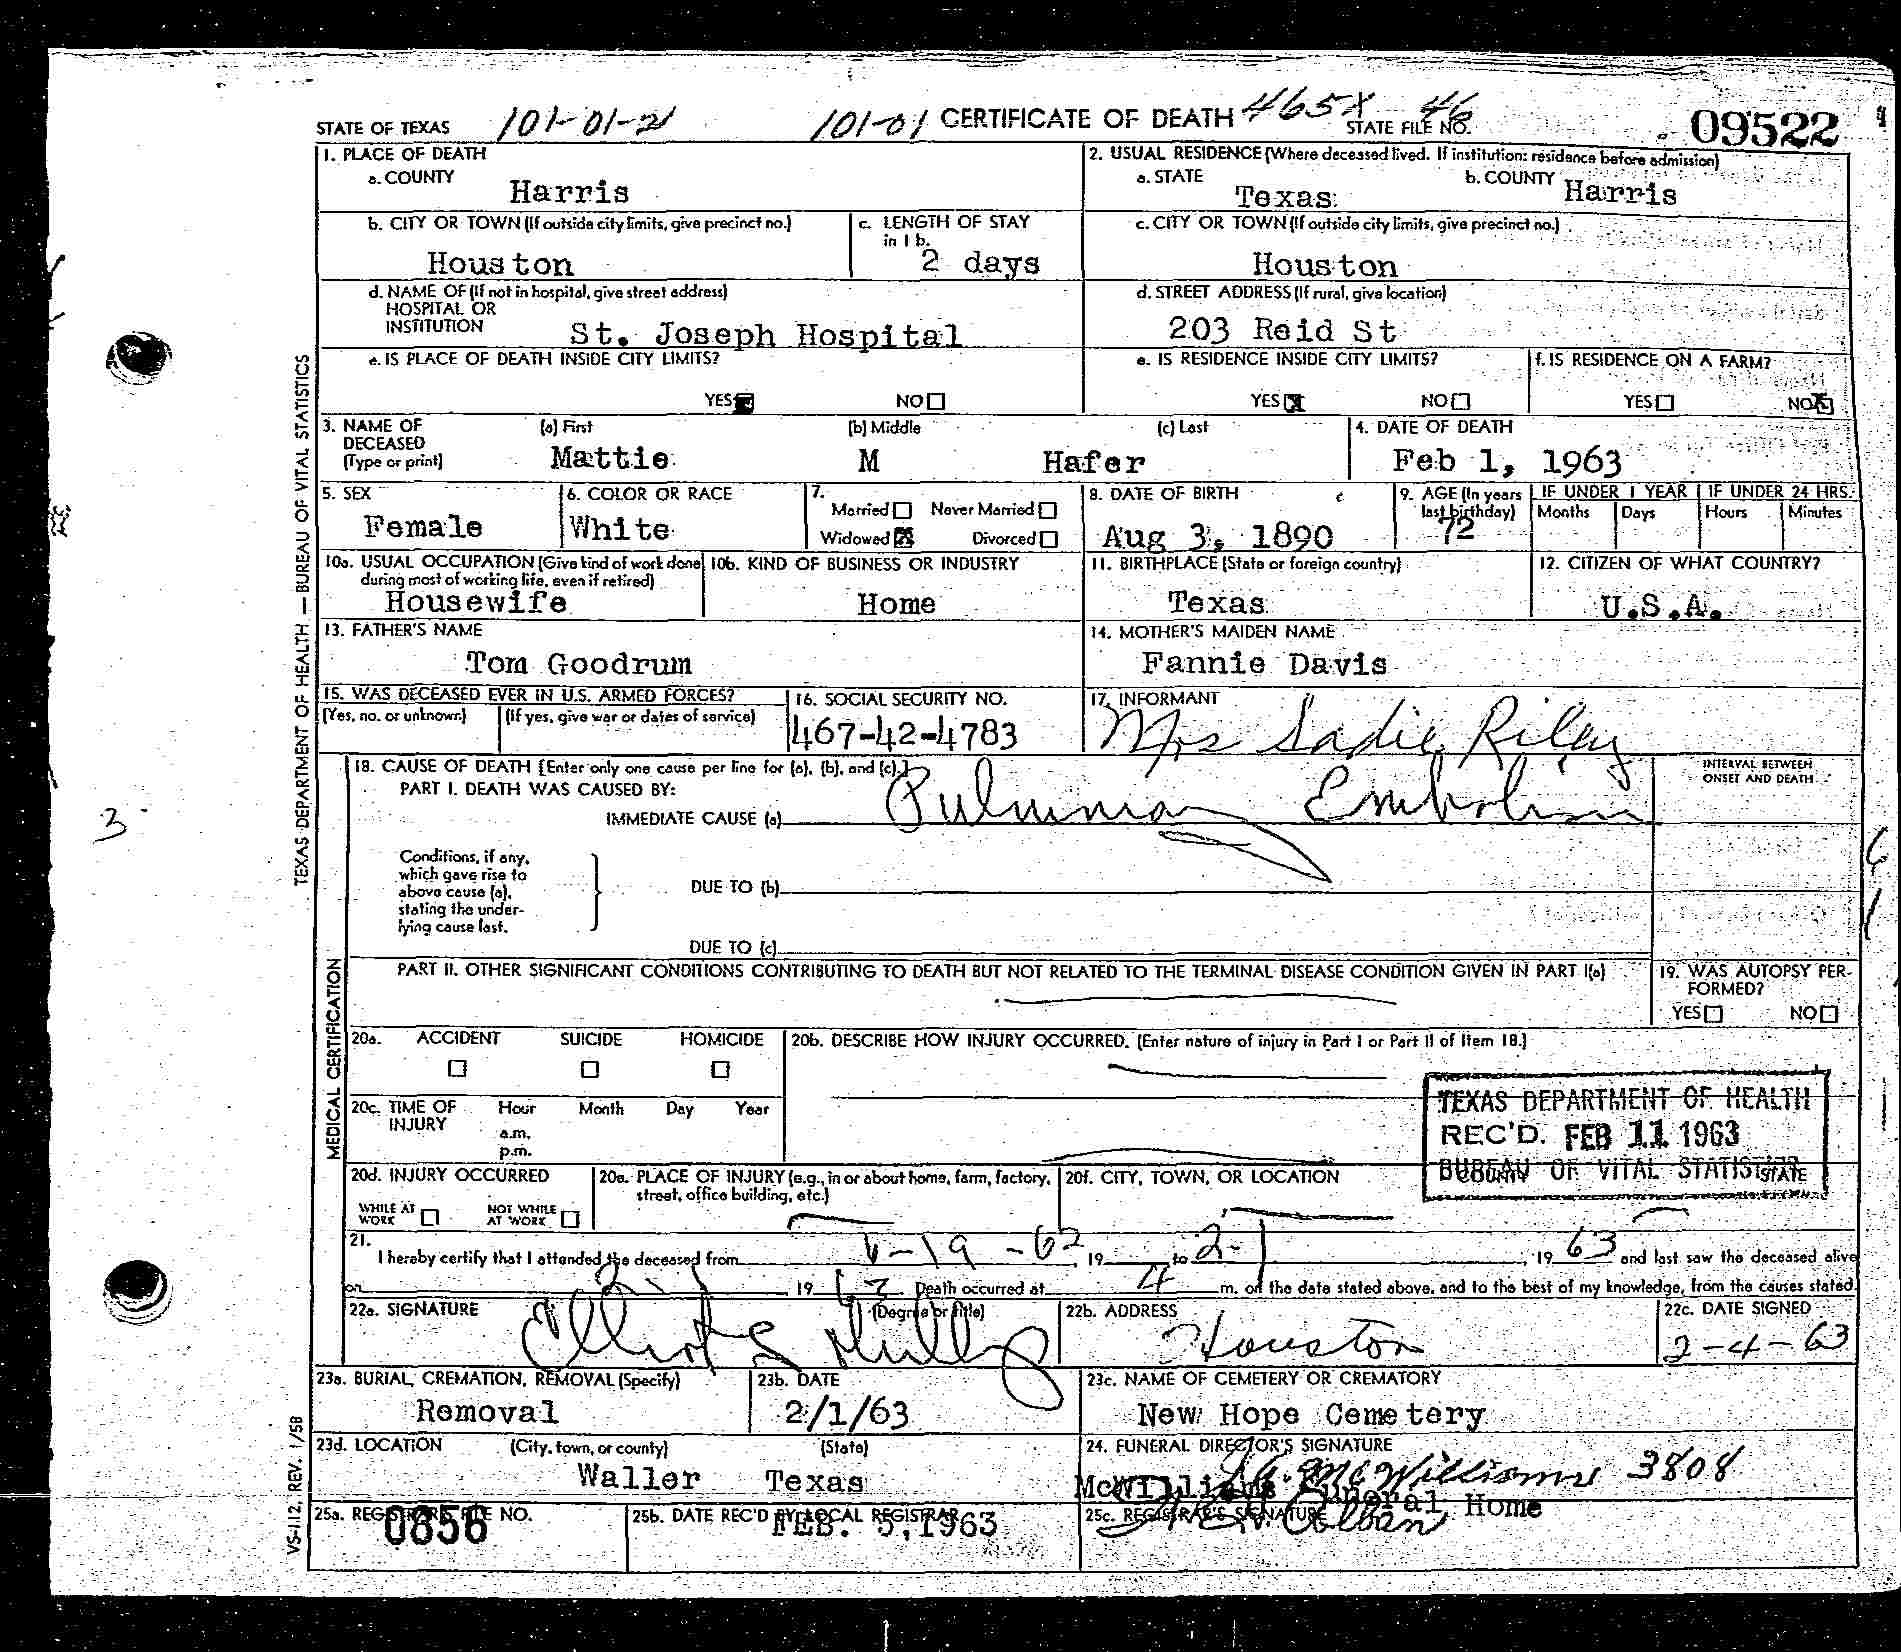 STATE OF TEXAS 101-01-21 101-01 CERTIFICATE OF DEATH 465X 46 STATE FILE NO. 09522
1. PLACE OF DEATH
a. COUNTY
Harris
2. USUAL RESIDENCE (Where deceased lived. If institution: residence before admission)
a. STATE
Texas
b. COUNTY
Harris
b. CITY OR TOWN (If outside city limits, give precinct no.)
Houston
c. LENGTH OF STAY
in 1 b.
2 days
c. CITY OR TOWN (If outside city limits, give precinct no.)
Houston
d. NAME OF (If not in hospital, give street address)
HOSPITAL OR
INSTITUTION
St. Joseph Hospital
d. STREET ADDRESS (If rural, give location)
203 Reid St
e. IS PLACE OF DEATH INSIDE CITY LIMITS?
YES NO
e. IS RESIDENCE INSIDE CITY LIMITS?
YES NO
f. IS RESIDENCE ON A FARM?
YES NO
3. NAME OF
DECEASED
(Type or print)
(a) First
Mattie
(b) Middle
M
(c) Last
Hafer
4. DATE OF DEATH
Feb 1, 1963
5. SEX
Female
6. COLOR OR RACE
White
7.
Married Never Married
Widowed Divorced
8. DATE OF BIRTH
Aug 3, 1890
9. AGE (In years
last birthday)
72
IF UNDER 1 YEAR
Months Days
IF UNDER 24 HRS.
Hours Minutes
10a. USUAL OCCUPATION (Give kind of work done
during most of working life, even if retired)
Housewife
10b. KIND OF BUSINESS OR INDUSTRY
Home
11. BIRTHPLACE (State or foreign country)
Texas
12. CITIZEN OF WHAT COUNTRY?
U.S.A.
13. FATHER'S NAME
Tom Goodrum
14. MOTHER'S MAIDEN NAME
Fannie Davis
15. WAS DECEASED EVER IN U.S. ARMED FORCES?
(Yes, no, or unknown) (If yes, give war or dates of service)
16. SOCIAL SECURITY NO.
467-42-4783
17. INFORMANT
Mrs Sadie Riley
18. CAUSE OF DEATH [Enter only one cause per line for (a), (b), and (c).]
PART I. DEATH WAS CAUSED BY:
IMMEDIATE CAUSE (a) Pulmonary Embolism
INTERVAL BETWEEN
ONSET AND DEATH
Conditions, if any,
which gave rise to
above cause (a),
stating the under-
lying cause last.
DUE TO (b)
DUE TO (c)
PART II. OTHER SIGNIFICANT CONDITIONS CONTRIBUTING TO DEATH BUT NOT RELATED TO THE TERMINAL DISEASE CONDITION GIVEN IN PART I(a)
19. WAS AUTOPSY PER-
FORMED?
YES NO
20a. ACCIDENT SUICIDE HOMICIDE
20b. DESCRIBE HOW INJURY OCCURRED. (Enter nature of injury in Part I or Part II of Item 18.)
20c. TIME OF
INJURY
Hour Month Day Year
a.m.
p.m.
TEXAS DEPARTMENT OF HEALTH
REC'D. FEB 11 1963
BUREAU OF VITAL STATISTICS
20d. INJURY OCCURRED
WHILE AT
WORK
NOT WHILE
AT WORK
20e. PLACE OF INJURY (e.g., in or about home, farm, factory,
street, office building, etc.)
20f. CITY, TOWN, OR LOCATION COUNTY STATE
21.
I hereby certify that I attended the deceased from -19-62, 19 to 2-1, 19 63 and last saw the deceased alive
on 2-1 19 63 Death occurred at 4 m. on the date stated above, and to the best of my knowledge, from the causes stated.
22a. SIGNATURE (Degree or title)
22b. ADDRESS
Houston
22c. DATE SIGNED
2-4-63
23a. BURIAL, CREMATION, REMOVAL (Specify)
Removal
23b. DATE
2/1/63
23c. NAME OF CEMETERY OR CREMATORY
New Hope Cemetery
23d. LOCATION (City, town, or county) (State)
Waller Texas
24. FUNERAL DIRECTOR'S SIGNATURE
McWilliams 3808
McWilliams Funeral Home
25a. REGISTRAR'S FILE NO.
0856
25b. DATE REC'D BY LOCAL REGISTRAR
FEB. 5, 1963
25c. REGISTRAR'S SIGNATURE
TEXAS DEPARTMENT OF HEALTH — BUREAU OF VITAL STATISTICS
MEDICAL CERTIFICATION
VS-112, REV. 1/58
3